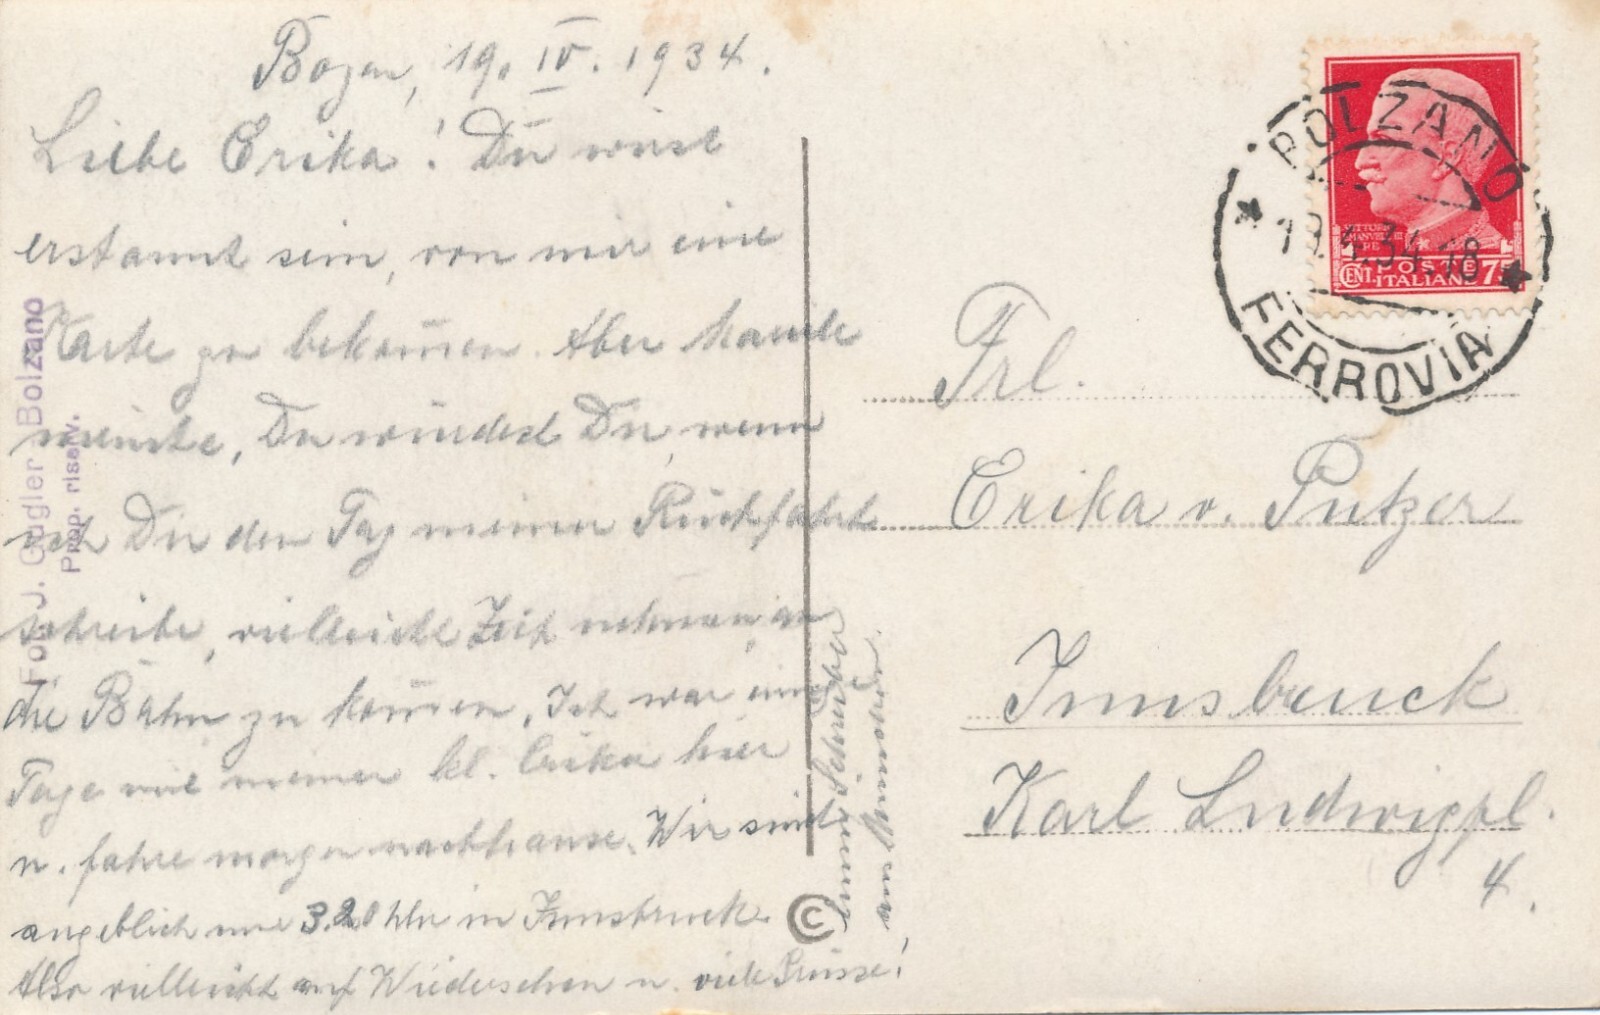 Bozen, 19. IV. 1934.
Liebe Erika! Du wirst
erstaunt sein, von mir eine
Karte zu bekom̄en. Aber
meinte, Du würdest Dir, wenn
ich Dir den Tag meiner Rückfahrt
schreibe, vielleicht Zeit nehmen, an
die Bahn zu kom̄en. Ich war
Tage mit meiner kl. Erika hier
u. fahre morgen nachhause. Wir sind
angeblich um 3.20 Uhr in Innsbruck.
Also vielleicht auf Wiedersehen u. viele Grüsse!
Schreiber
Foto J. Gugler Bolzano
Prop. riserv.
©
BOLZANO
19.4.34.18
FERROVIA
VITTORIO
EMANUELE
RE
CENT POSTE 75
ITALIANE
Frl.
Erika v. Putzer
Innsbruck
Karl Ludwigpl.
4.